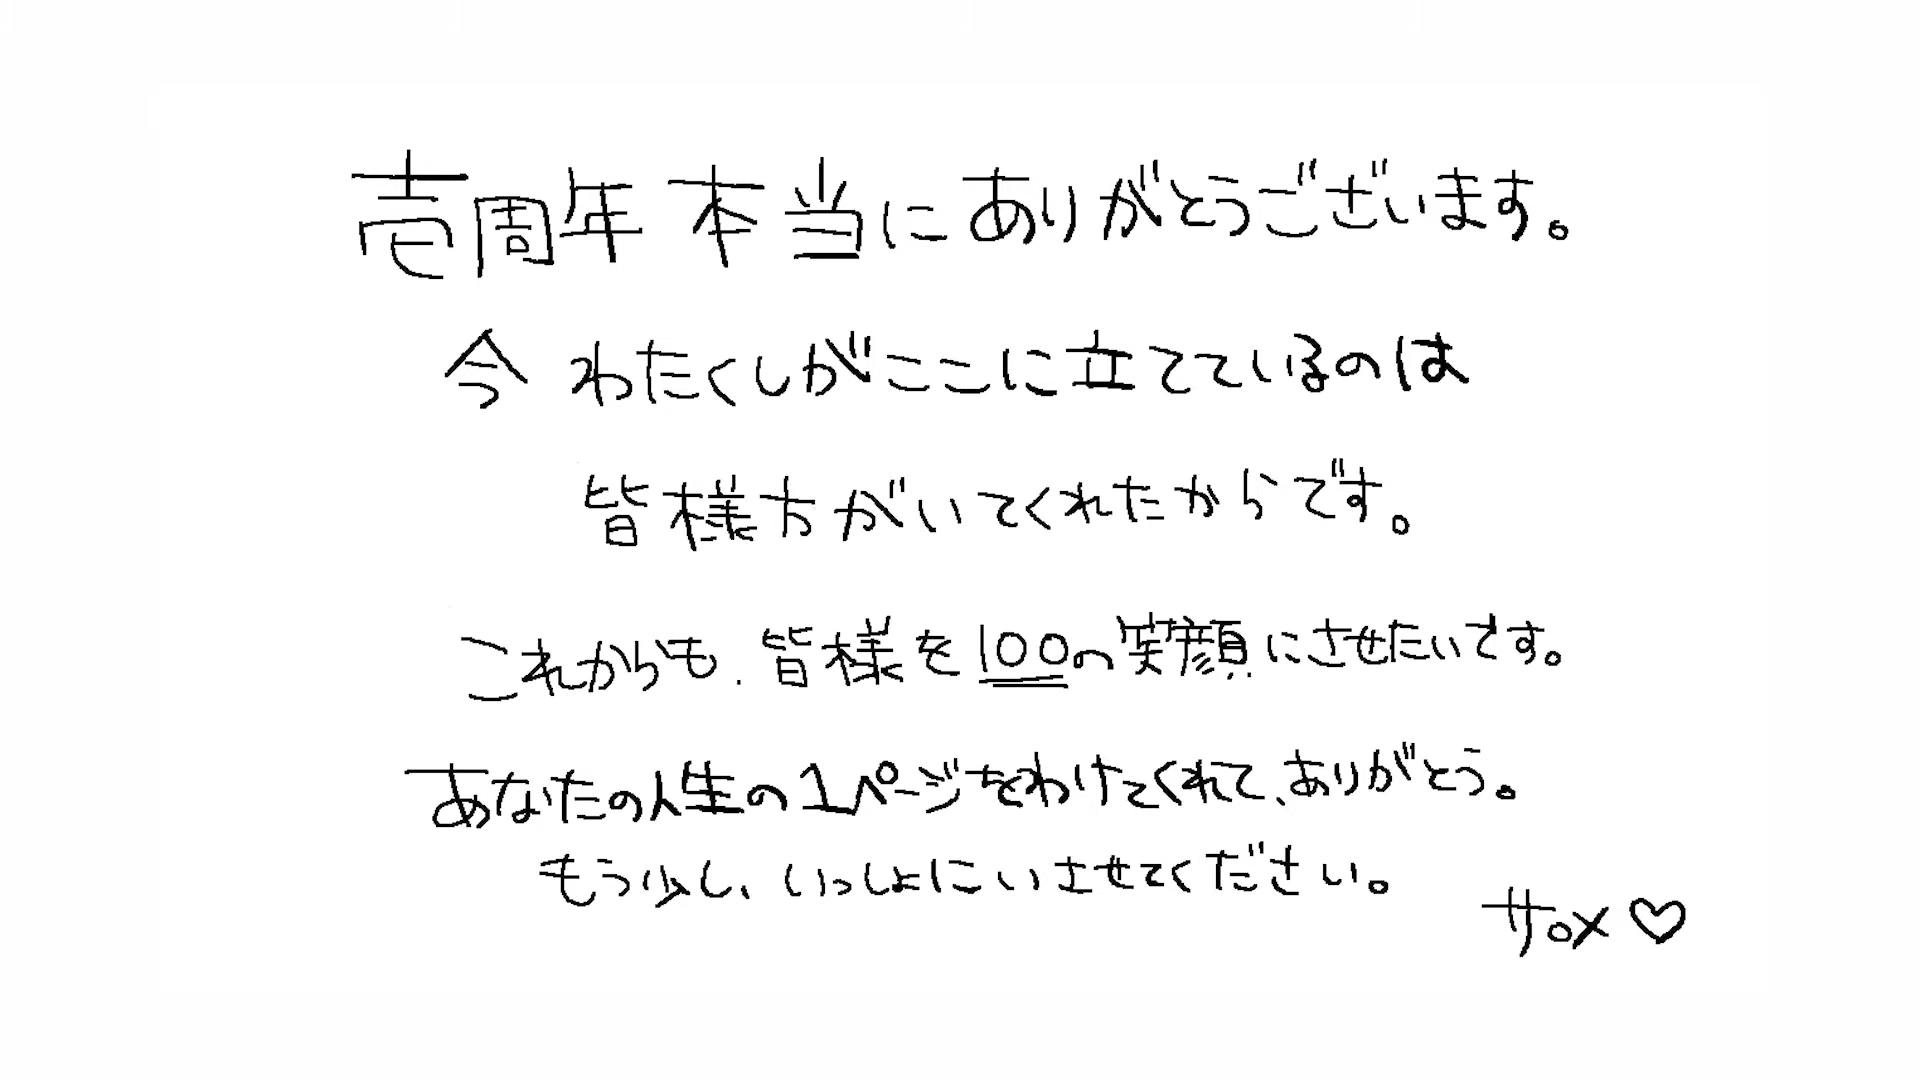 壱周年 本当にありがとうございます。
今 わたくしがここに立てているのは
皆様方がいてくれたからです。
これからも、皆様を100の笑顔にさせたいです。
あなたの人生の1ページをわけてくれて、ありがとう。
もう少し、いっしょにいさせてください。
サロメ♡